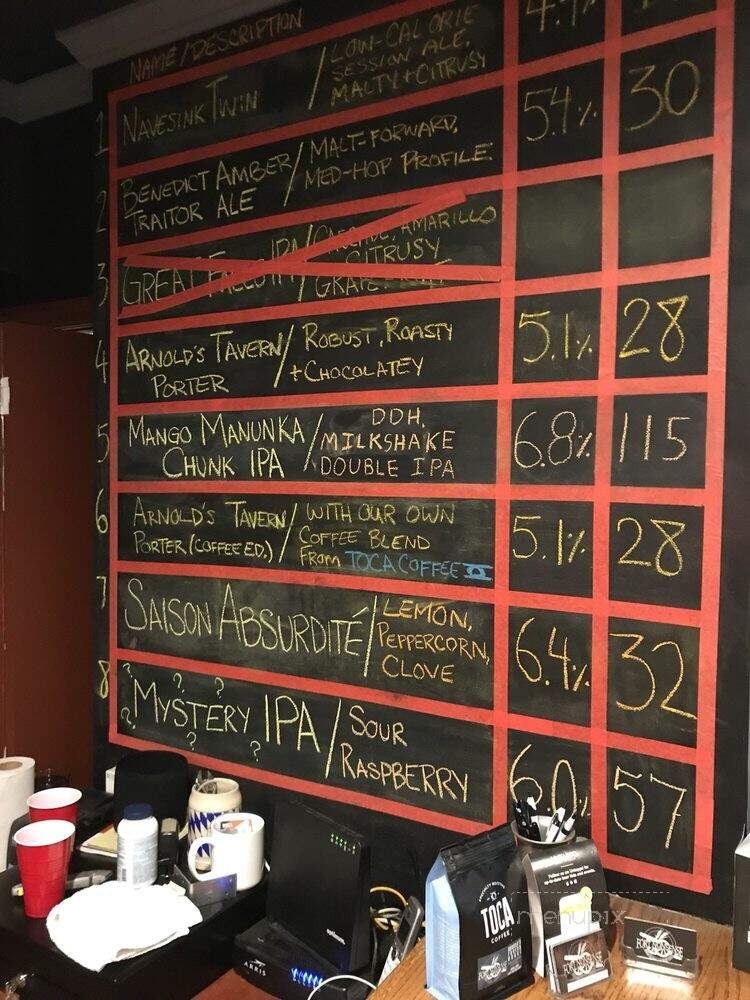 NAME/DESCRIPTION
1 NAVESINK TWIN / LOW-CALORIE
SESSION ALE,
MALTY + CITRUSY
2 BENEDICT AMBER / MALT-FORWARD, 5.4% 30
TRAITOR ALE MED-HOP PROFILE
3 GREAT FALLS IPA / CASCADE, AMARILLO
CITRUSY
GRAPEFRUIT
4 ARNOLD'S TAVERN / ROBUST, ROASTY 5.1% 28
PORTER + CHOCOLATEY
5 MANGO MANUNKA / DDH, 6.8% 115
CHUNK IPA MILKSHAKE
DOUBLE IPA
6 ARNOLD'S TAVERN / WITH OUR OWN 5.1% 28
PORTER (COFFEE ED.) COFFEE BLEND
FROM TOCA COFFEE
7 SAISON ABSURDITÉ / LEMON, 6.4% 32
PEPPERCORN,
CLOVE
8 ? ? ? ? ? ? MYSTERY IPA / SOUR 6.0% 57
RASPBERRY
ARRIS
TOCA
COFFEE
menupix
FORT NONSENSE
FORT NONSENSE